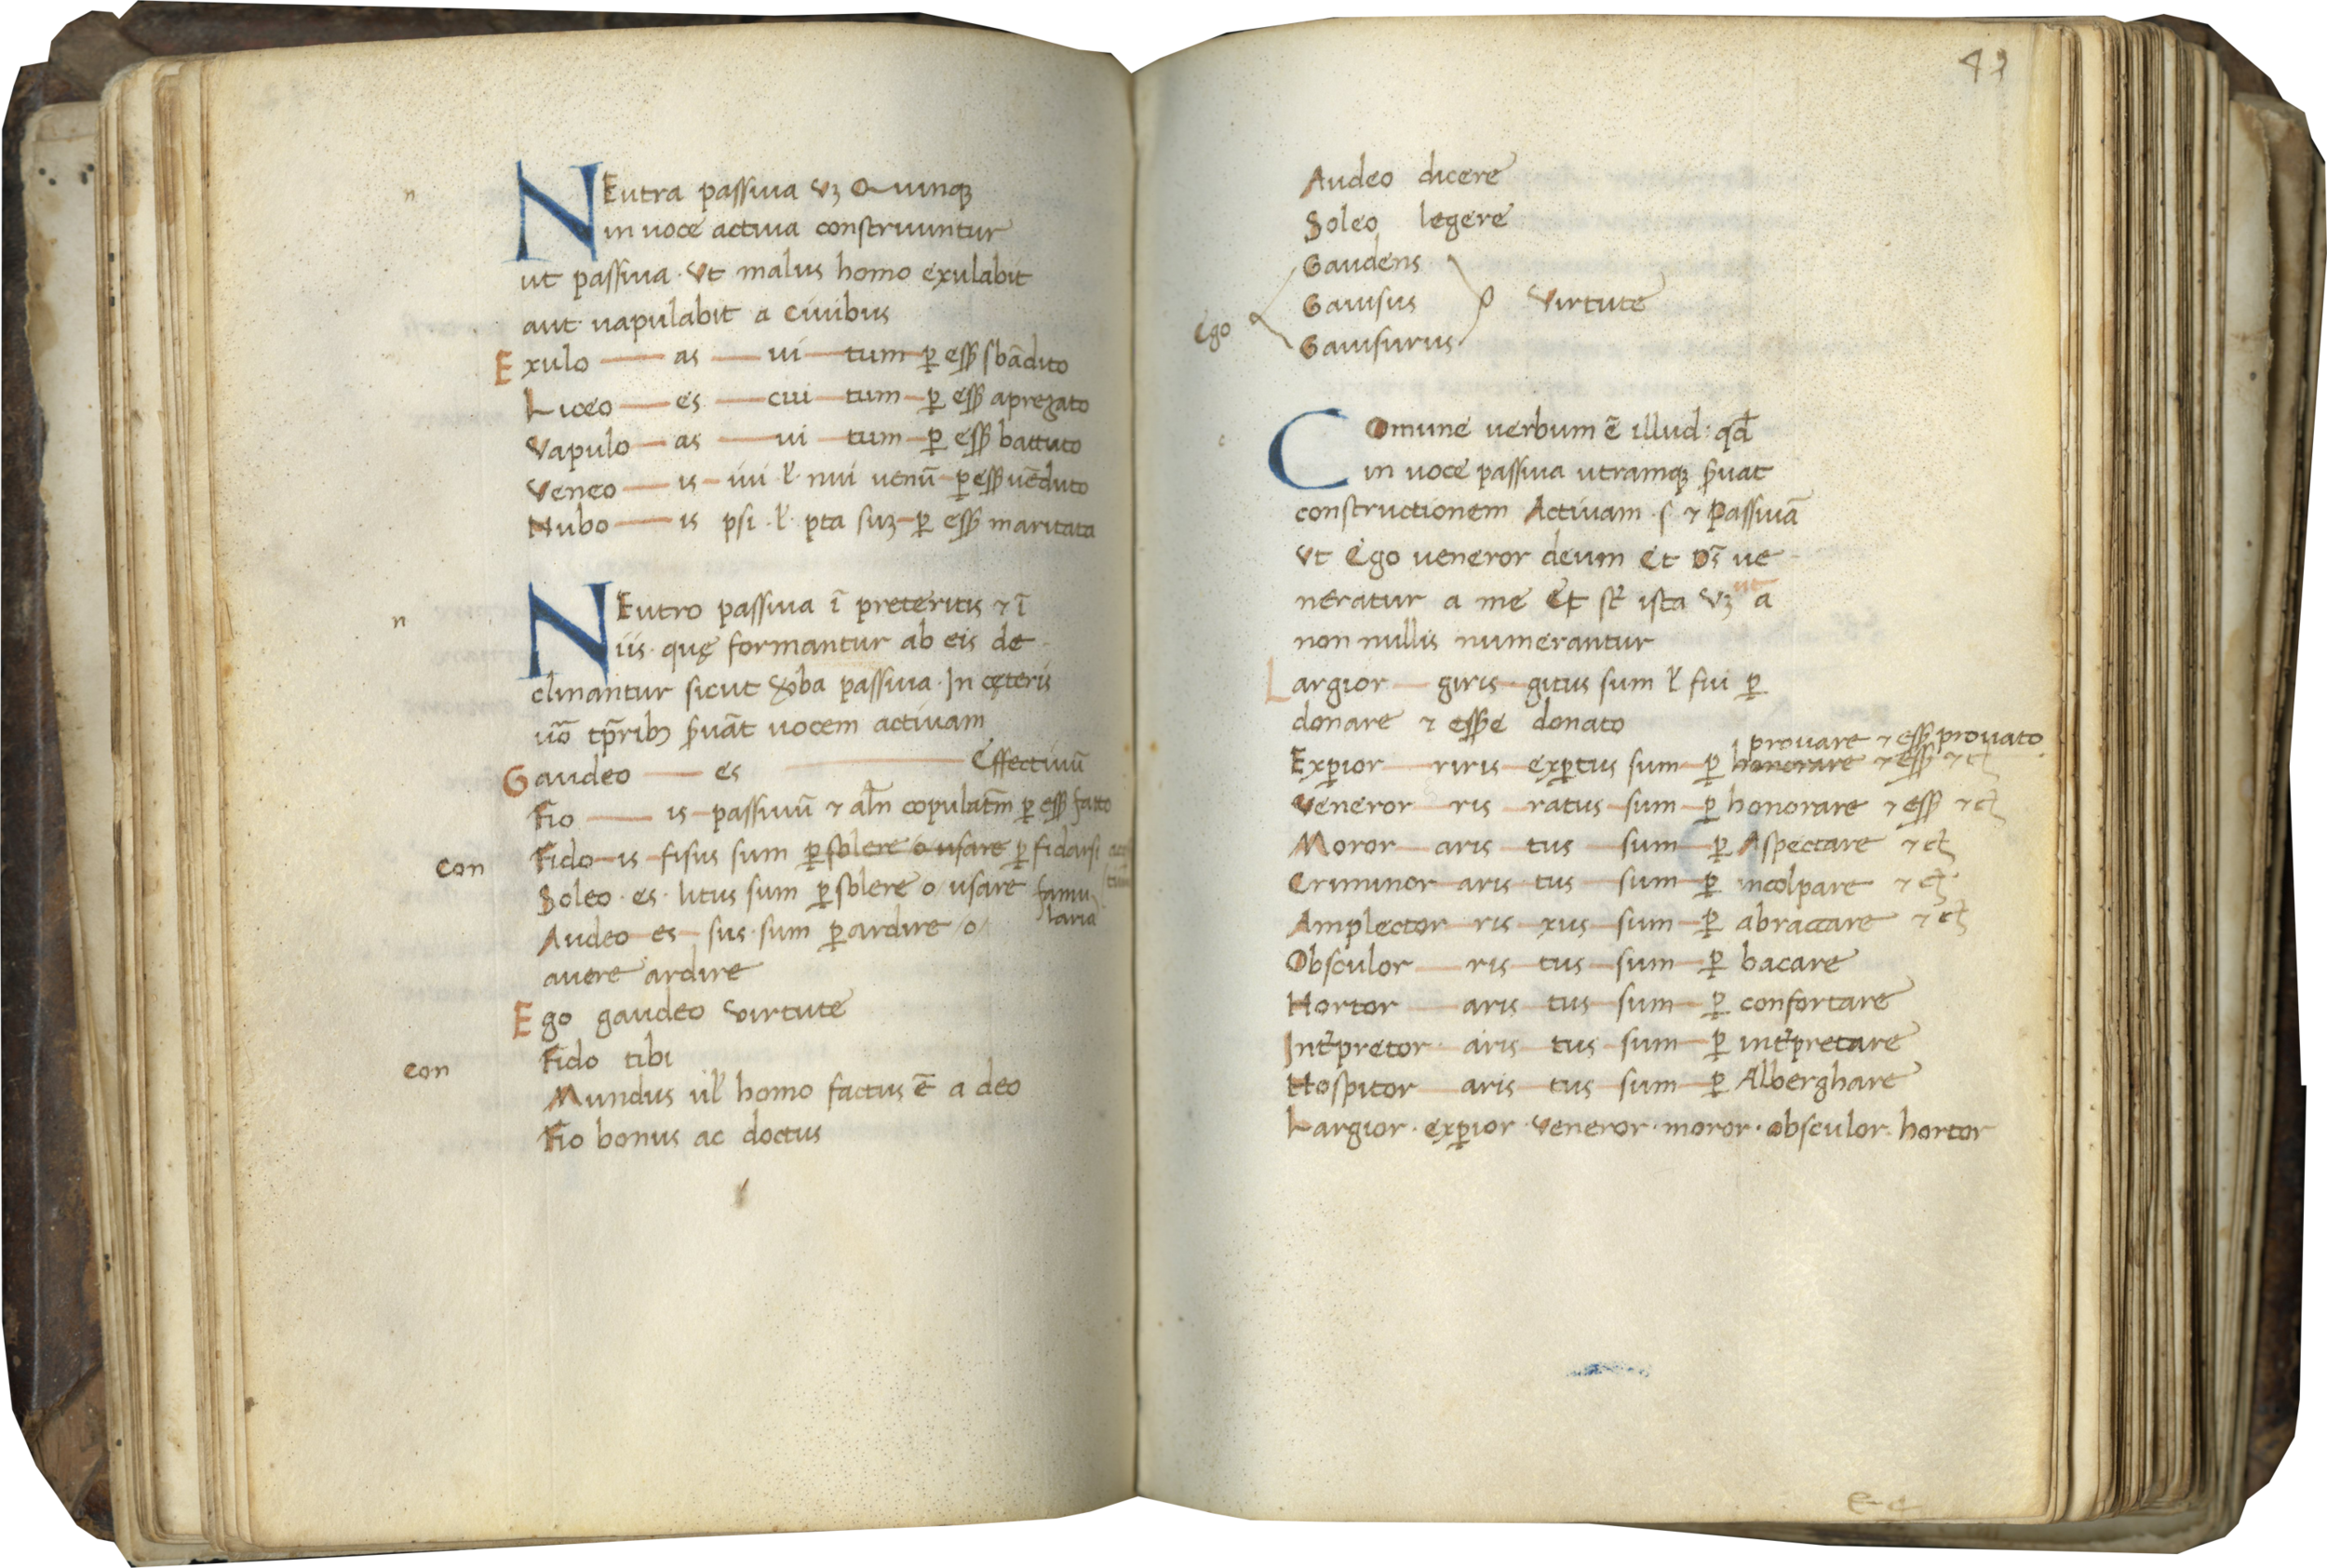 n
NEutra passiua vꝫ Quinqꝫ
in uoce actiua construuntur
ut passiua · Ut malus homo exulabit
aut uapulabit a Ciuibus
Exulo — as — ui — tum — ꝑ eſſ sbādito
Liceo — es — cui — tum — ꝑ eſſ aprezato
Vapulo — as — ui — tum — ꝑ eſſ battuto
Veneo — is — iui · ł · niui uenū — ꝑ eſſ uēduto
Nubo — is psi · ł · pta suꝫ — ꝑ eſſ maritata
n
NEutro passiua ī preteritis ⁊ ī
iis · quę formantur ab eis de
clinantur sicut ꝟba passiua · In cęteris
uō tp̄ribꝫ s̄uāt uocem actiuam
Gaudeo — es — Effectiuū
Fio — is — passiuū ⁊ al̄n copulat̄m ꝑ eſſ fatto
con
Fido — is — fisus sum ꝑ solere o usare ꝑ fidarsi
Soleo · es · litus sum ꝑ solere o usare famu
laria
Audeo — es — sus · sum ꝑ ardire /o/
auere ardire
Ego gaudeo virtute
con
Fido tibi
Mundus ul̉ homo factus ē a deo
Fio bonus ac doctus
Audeo dicere
Soleo legere
Gaudens
Ego Gauisus Virtute
Gauisurus
c
COmune uerbum ē illud : qd̄
in uoce passiua utramqꝫ s̄uat
constructionem Actiuam · s · ⁊ Passiuā
Ut Ego ueneror deum Et Ds̄ ue
neratur a me Et st̄ ista vꝫ a
non nullis numerantur
Largior — giris — gitus sum ł fui ꝑ
donare ⁊ eſſe donato
prouare ⁊ eſſ prouato
Exꝑior — riris — exꝑtus sum — ꝑ honorare ⁊ eſſ ⁊ cꝫ
Veneror — ris — ratus — sum — ꝑ honorare ⁊ eſſ ⁊ cꝫ
Moror — aris tus sum — ꝑ Aspectare ⁊ cꝫ
Criminor — aris — tus — sum — ꝑ incolpare ⁊ cꝫ
Amplector — ris — xus — sum — ꝑ abraccare ⁊ cꝫ
Obsculor — ris — tus — sum — ꝑ bacare
Hortor — aris tus — sum — ꝑ confortare
Int̄pretor — aris — tus — sum — ꝑ int̄pretare
Hospitor — aris — tus — sum — ꝑ Alberghare
Largior · exꝑior · Veneror · moror · obsculor · hortor